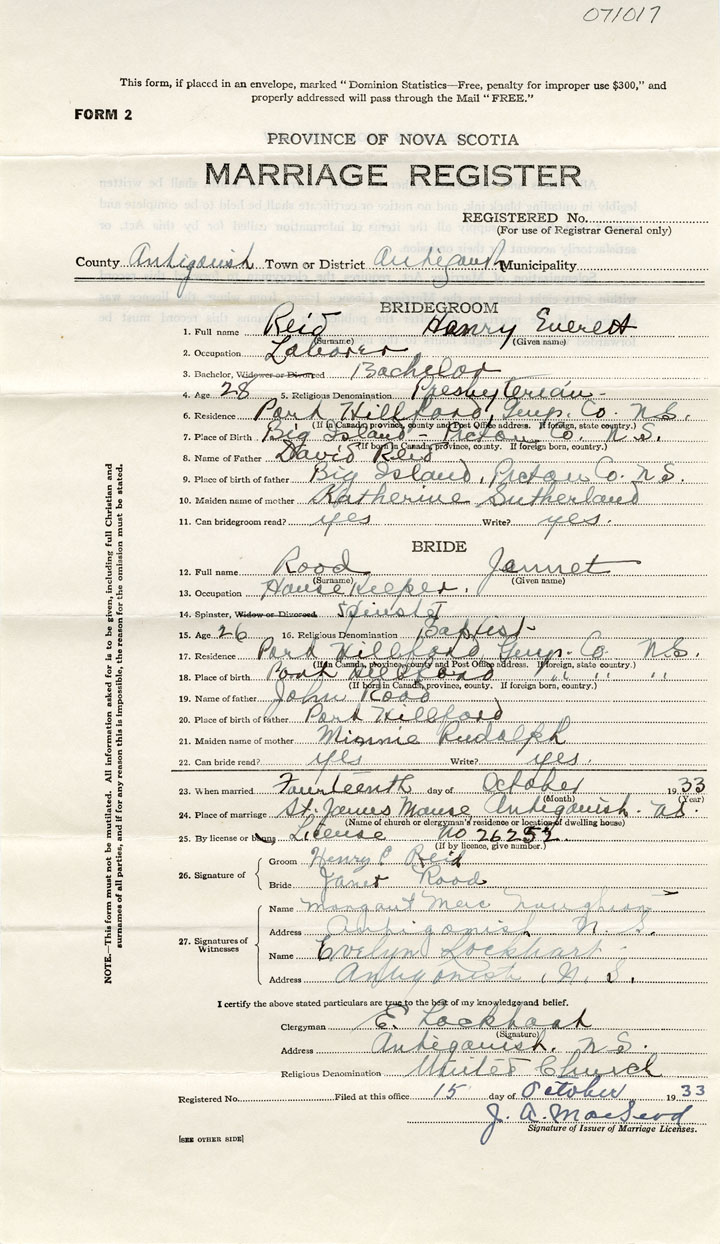 071017
This form, if placed in an envelope, marked "Dominion Statistics—Free, penalty for improper use $300," and
properly addressed will pass through the Mail "FREE."
FORM 2
PROVINCE OF NOVA SCOTIA
MARRIAGE REGISTER
REGISTERED No.
(For use of Registrar General only)
County Antigonish Town or District Antigonish Municipality
BRIDEGROOM
1. Full name Reid Henry Everett
(Surname) (Given name)
2. Occupation Laborer
3. Bachelor, Widower or Divorced Bachelor
4. Age 28 5. Religious Denomination Presbyterian
6. Residence Port Hillford, Guys. Co. N.S.
(If in Canada, province, county and Post Office address. If foreign, state country.)
7. Place of Birth Big Island - Pictou Co. N.S.
(If born in Canada, province, county. If foreign born, country.)
8. Name of Father David Reid
9. Place of birth of father Big Island, Pictou Co. N.S.
10. Maiden name of mother Katherine Sutherland
11. Can bridegroom read? yes Write? yes.
BRIDE
12. Full name Rood Jannet
(Surname) (Given name)
13. Occupation House Keeper.
14. Spinster, Widow or Divorced Spinster
15. Age 26 16. Religious Denomination Baptist
17. Residence Port Hillford Guys. Co. N.S.
(If in Canada, province, county and Post Office address. If foreign, state country.)
18. Place of birth Port Hillford " " "
(If born in Canada, province, county. If foreign born, country.)
19. Name of father John Rood
20. Place of birth of father Port Hillford
21. Maiden name of mother Minnie Rudolph
22. Can bride read? yes Write? yes.
23. When married Fourteenth day of October 1933
(Month) (Year)
24. Place of marriage St. James Manse Antigonish. N.S.
(Name of church or clergyman's residence or location of dwelling house)
25. By license or banns License No 26252
(If by licence, give number.)
26. Signature of Groom Henry E Reid
Bride Janet Rood
27. Signatures of Witnesses
Name Margaret
Address Antigonish N. S.
Name Evelyn Lockhart
Address Antigonish, N. S.
I certify the above stated particulars are true to the best of my knowledge and belief.
Clergyman E. Lockhart
(Signature)
Address Antigonish. N.S.
Religious Denomination United Church
Registered No. Filed at this office 15 day of October 1933
J. A. MacLeod
Signature of Issuer of Marriage Licenses.
[SEE OTHER SIDE]
NOTE.—This form must not be mutilated. All information asked for is to be given, including full Christian and
surnames of all parties, and if for any reason this is impossible, the reason for the omission must be stated.